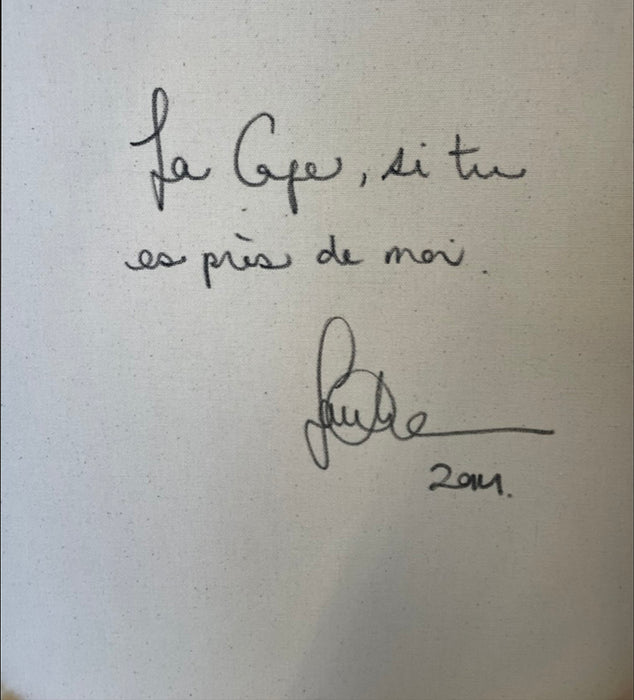 La Cage, si tu
es près de moi.
2014.